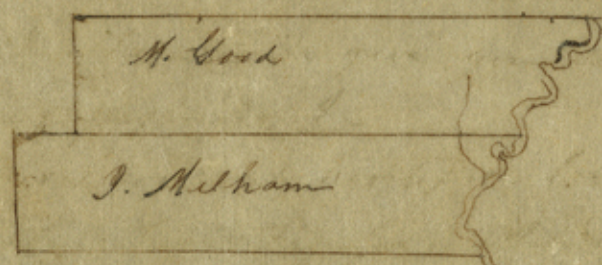 M. Good
I. Melham